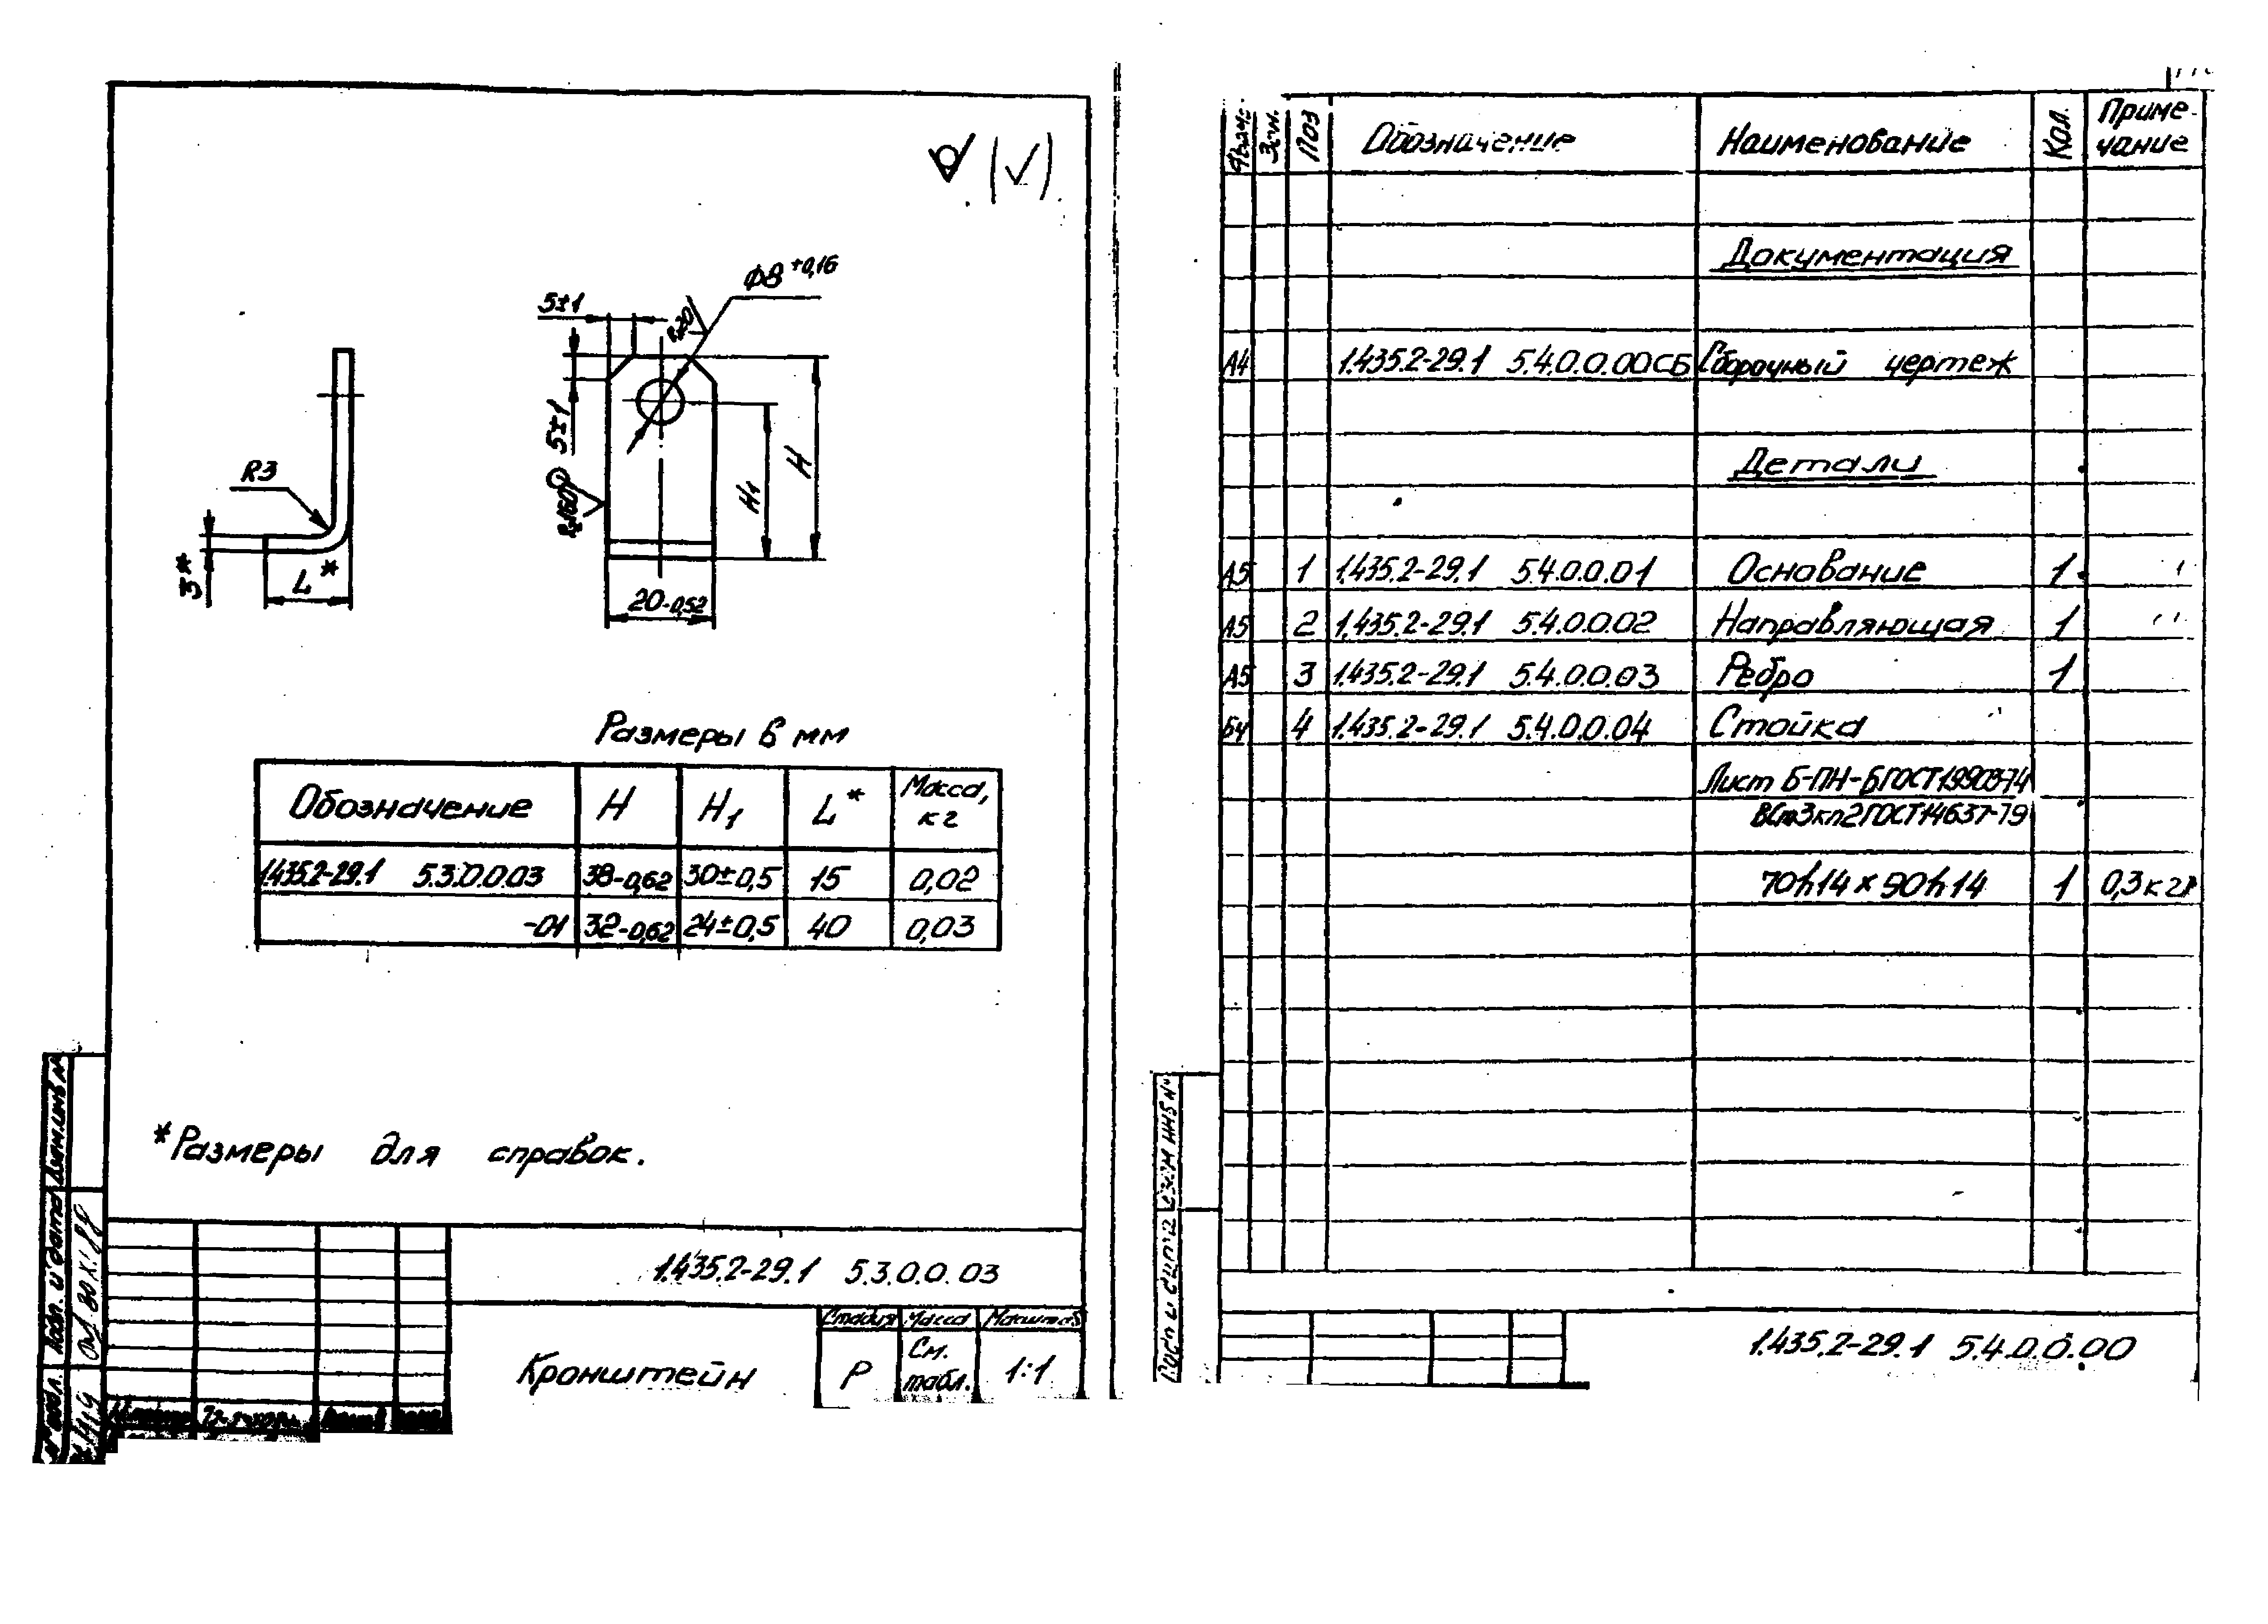 Ф8 +0,16
5±1
Rz20
5±1
R3
Rz160
H1
H
3*
L*
20-0,52
Размеры в мм
Обозначение H H1 L* Масса, кг
1.435.2-29.1 5.3.0.0.03 38-0,62 30±0,5 15 0,02
-01 32-0,62 24±0,5 40 0,03
*Размеры для справок.
1.435.2-29.1 5.3.0.0.03
Стадия Масса Масштаб
Кронштейн Р См. табл. 1:1
Подп. и дата
Зон. Поз Обозначение Наименование Кол. Приме-
чание
Документация
А4 1.435.2-29.1 5.4.0.0.00СБ Сборочный чертеж
Детали
А5 1 1.435.2-29.1 5.4.0.0.01 Основание 1
А5 2 1.435.2-29.1 5.4.0.0.02 Направляющая 1
А5 3 1.435.2-29.1 5.4.0.0.03 Ребро 1
БЧ 4 1.435.2-29.1 5.4.0.0.04 Стойка
Лист Б-ПН-6 ГОСТ 19903-74
ВСт3кп2 ГОСТ 14637-79
70h14 x 90h14 1 0,3кг
1.435.2-29.1 5.4.0.0.00